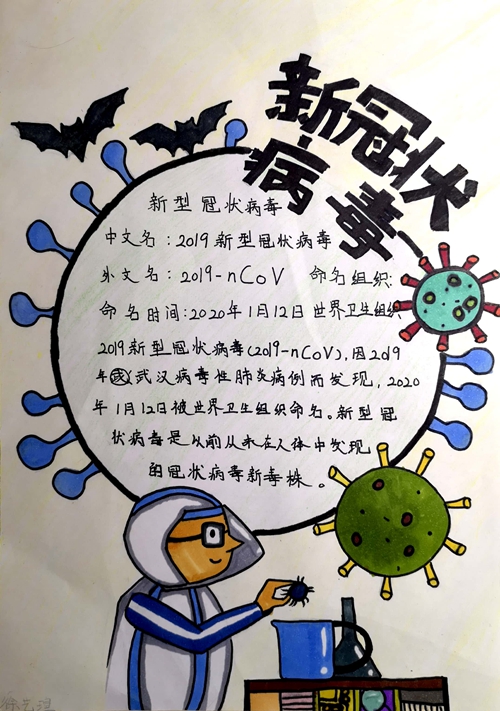 新冠状
病毒
新型冠状病毒
中文名：2019新型冠状病毒
外文名：2019-nCoV 命名组织：
命名时间：2020年1月12日世界卫生组织
2019新型冠状病毒(2019-nCoV)，因2019
年武汉病毒性肺炎病例而发现，2020
年1月12日被世界卫生组织命名。新型冠
状病毒是以前从未在人体中发现
的冠状病毒新毒株。